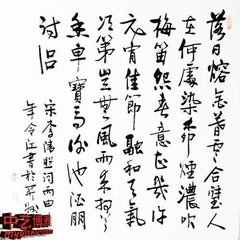 落日熔金暮雲合璧人
在何處染柳煙濃吹
梅笛怨春意知幾許
元宵佳節融和天氣
次第豈無風雨來相召
香車寶馬謝他酒朋
詩侶
宋李清照詞
年令江書於
中艺